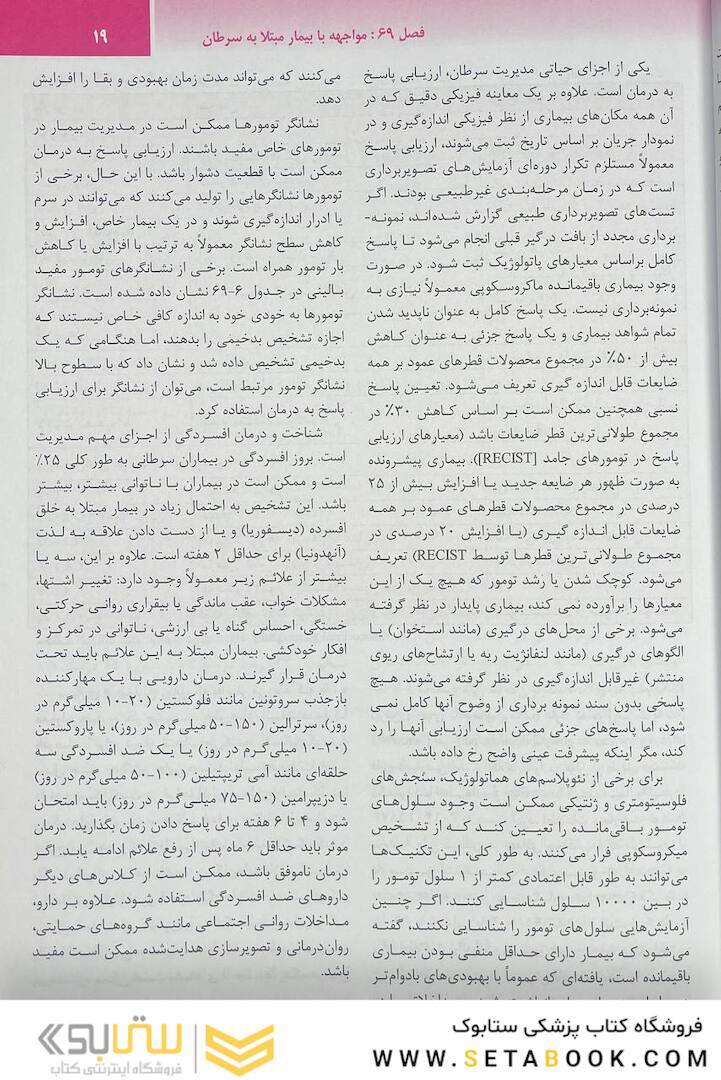 فصل ۶۹ : مواجهه با بیمار مبتلا به سرطان
۱۹
یکی از اجزای حیاتی مدیریت سرطان، ارزیابی پاسخ
به درمان است. علاوه بر یک معاینه فیزیکی دقیق که در
آن همه مکان‌های بیماری از نظر فیزیکی اندازه‌گیری و در
نمودار جریان بر اساس تاریخ ثبت می‌شوند، ارزیابی پاسخ
معمولاً مستلزم تکرار دوره‌ای آزمایش‌های تصویربرداری
است که در زمان مرحله‌بندی غیرطبیعی بودند. اگر
تست‌های تصویربرداری طبیعی گزارش شده‌اند، نمونه-
برداری مجدد از بافت درگیر قبلی انجام می‌شود تا پاسخ
کامل براساس معیارهای پاتولوژیک ثبت شود. در صورت
وجود بیماری باقیمانده ماکروسکوپی معمولاً نیازی به
نمونه‌برداری نیست. یک پاسخ کامل به عنوان ناپدید شدن
تمام شواهد بیماری و یک پاسخ جزئی به عنوان کاهش
بیش از ۵۰٪ در مجموع محصولات قطرهای عمود بر همه
ضایعات قابل اندازه گیری تعریف می‌شود. تعیین پاسخ
نسبی همچنین ممکن است بر اساس کاهش ۳۰٪ در
مجموع طولانی‌ترین قطر ضایعات باشد (معیارهای ارزیابی
پاسخ در تومورهای جامد [RECIST]). بیماری پیشرونده
به صورت ظهور هر ضایعه جدید یا افزایش بیش از ۲۵
درصدی در مجموع محصولات قطرهای عمود بر همه
ضایعات قابل اندازه گیری (یا افزایش ۲۰ درصدی در
مجموع طولانی‌ترین قطرها توسط RECIST) تعریف
می‌شود. کوچک شدن یا رشد تومور که هیچ یک از این
معیارها را برآورده نمی کند، بیماری پایدار در نظر گرفته
می‌شود. برخی از محل‌های درگیری (مانند استخوان) یا
الگوهای درگیری (مانند لنفانژیت ریه یا ارتشاح‌های ریوی
منتشر) غیرقابل اندازه‌گیری در نظر گرفته می‌شوند. هیچ
پاسخی بدون سند نمونه برداری از وضوح آنها کامل نمی
شود، اما پاسخ‌های جزئی ممکن است ارزیابی آنها را رد
کند، مگر اینکه پیشرفت عینی واضح رخ داده باشد.
برای برخی از نئوپلاسم‌های هماتولوژیک، سنجش‌های
فلوسیتومتری و ژنتیکی ممکن است وجود سلول‌های
تومور باقی‌مانده را تعیین کند که از تشخیص
میکروسکوپی فرار می‌کنند. به طور کلی، این تکنیک‌ها
می‌توانند به طور قابل اعتمادی کمتر از ۱ سلول تومور را
در بین ۱۰۰۰۰ سلول شناسایی کنند. اگر چنین
آزمایش‌هایی سلول‌های تومور را شناسایی نکنند، گفته
می‌شود که بیمار دارای حداقل منفی بودن بیماری
باقیمانده است، یافته‌ای که عموماً با بهبودی‌های بادوام‌تر
می‌کنند که می‌تواند مدت زمان بهبودی و بقا را افزایش
دهد.
نشانگر تومورها ممکن است در مدیریت بیمار در
تومورهای خاص مفید باشند. ارزیابی پاسخ به درمان
ممکن است با قطعیت دشوار باشد. با این حال، برخی از
تومورها نشانگرهایی را تولید می‌کنند که می‌توانند در سرم
یا ادرار اندازه‌گیری شوند و در یک بیمار خاص، افزایش و
کاهش سطح نشانگر معمولاً به ترتیب با افزایش یا کاهش
بار تومور همراه است. برخی از نشانگرهای تومور مفید
بالینی در جدول ۶-۶۹ نشان داده شده است. نشانگر
تومورها به خودی خود به اندازه کافی خاص نیستند که
اجازه تشخیص بدخیمی را بدهند، اما هنگامی که یک
بدخیمی تشخیص داده شد و نشان داد که با سطوح بالا
نشانگر تومور مرتبط است، می‌توان از نشانگر برای ارزیابی
پاسخ به درمان استفاده کرد.
شناخت و درمان افسردگی از اجزای مهم مدیریت
است. بروز افسردگی در بیماران سرطانی به طور کلی ۲۵٪
است و ممکن است در بیماران با ناتوانی بیشتر، بیشتر
باشد. این تشخیص به احتمال زیاد در بیمار مبتلا به خلق
افسرده (دیسفوریا) و یا از دست دادن علاقه به لذت
(آنهدونیا) برای حداقل ۲ هفته است. علاوه بر این، سه یا
بیشتر از علائم زیر معمولاً وجود دارد: تغییر اشتها،
مشکلات خواب، عقب ماندگی یا بیقراری روانی حرکتی،
خستگی، احساس گناه یا بی ارزشی، ناتوانی در تمرکز و
افکار خودکشی. بیماران مبتلا به این علائم باید تحت
درمان قرار گیرند. درمان دارویی با یک مهارکننده
بازجذب سروتونین مانند فلوکستین (۲۰-۱۰ میلی‌گرم در
روز)، سرترالین (۱۵۰-۵۰ میلی‌گرم در روز)، یا پاروکستین
(۲۰-۱۰ میلی‌گرم در روز) یا یک ضد افسردگی سه
حلقه‌ای مانند آمی تریپتیلین (۱۰۰-۵۰ میلی‌گرم در روز)
یا دزیپرامین (۱۵۰-۷۵ میلی‌گرم در روز) باید امتحان
شود و ۴ تا ۶ هفته برای پاسخ دادن زمان بگذارید. درمان
موثر باید حداقل ۶ ماه پس از رفع علائم ادامه یابد. اگر
درمان ناموفق باشد، ممکن است از کلاس‌های دیگر
داروهای ضد افسردگی استفاده شود. علاوه بر دارو،
مداخلات روانی اجتماعی مانند گروه‌های حمایتی،
روان‌درمانی و تصویرسازی هدایت‌شده ممکن است مفید
باشد.
فروشگاه کتاب پزشکی ستابوک
WWW.SETABOOK.COM
ستابوک
فروشگاه اینترنتی کتاب